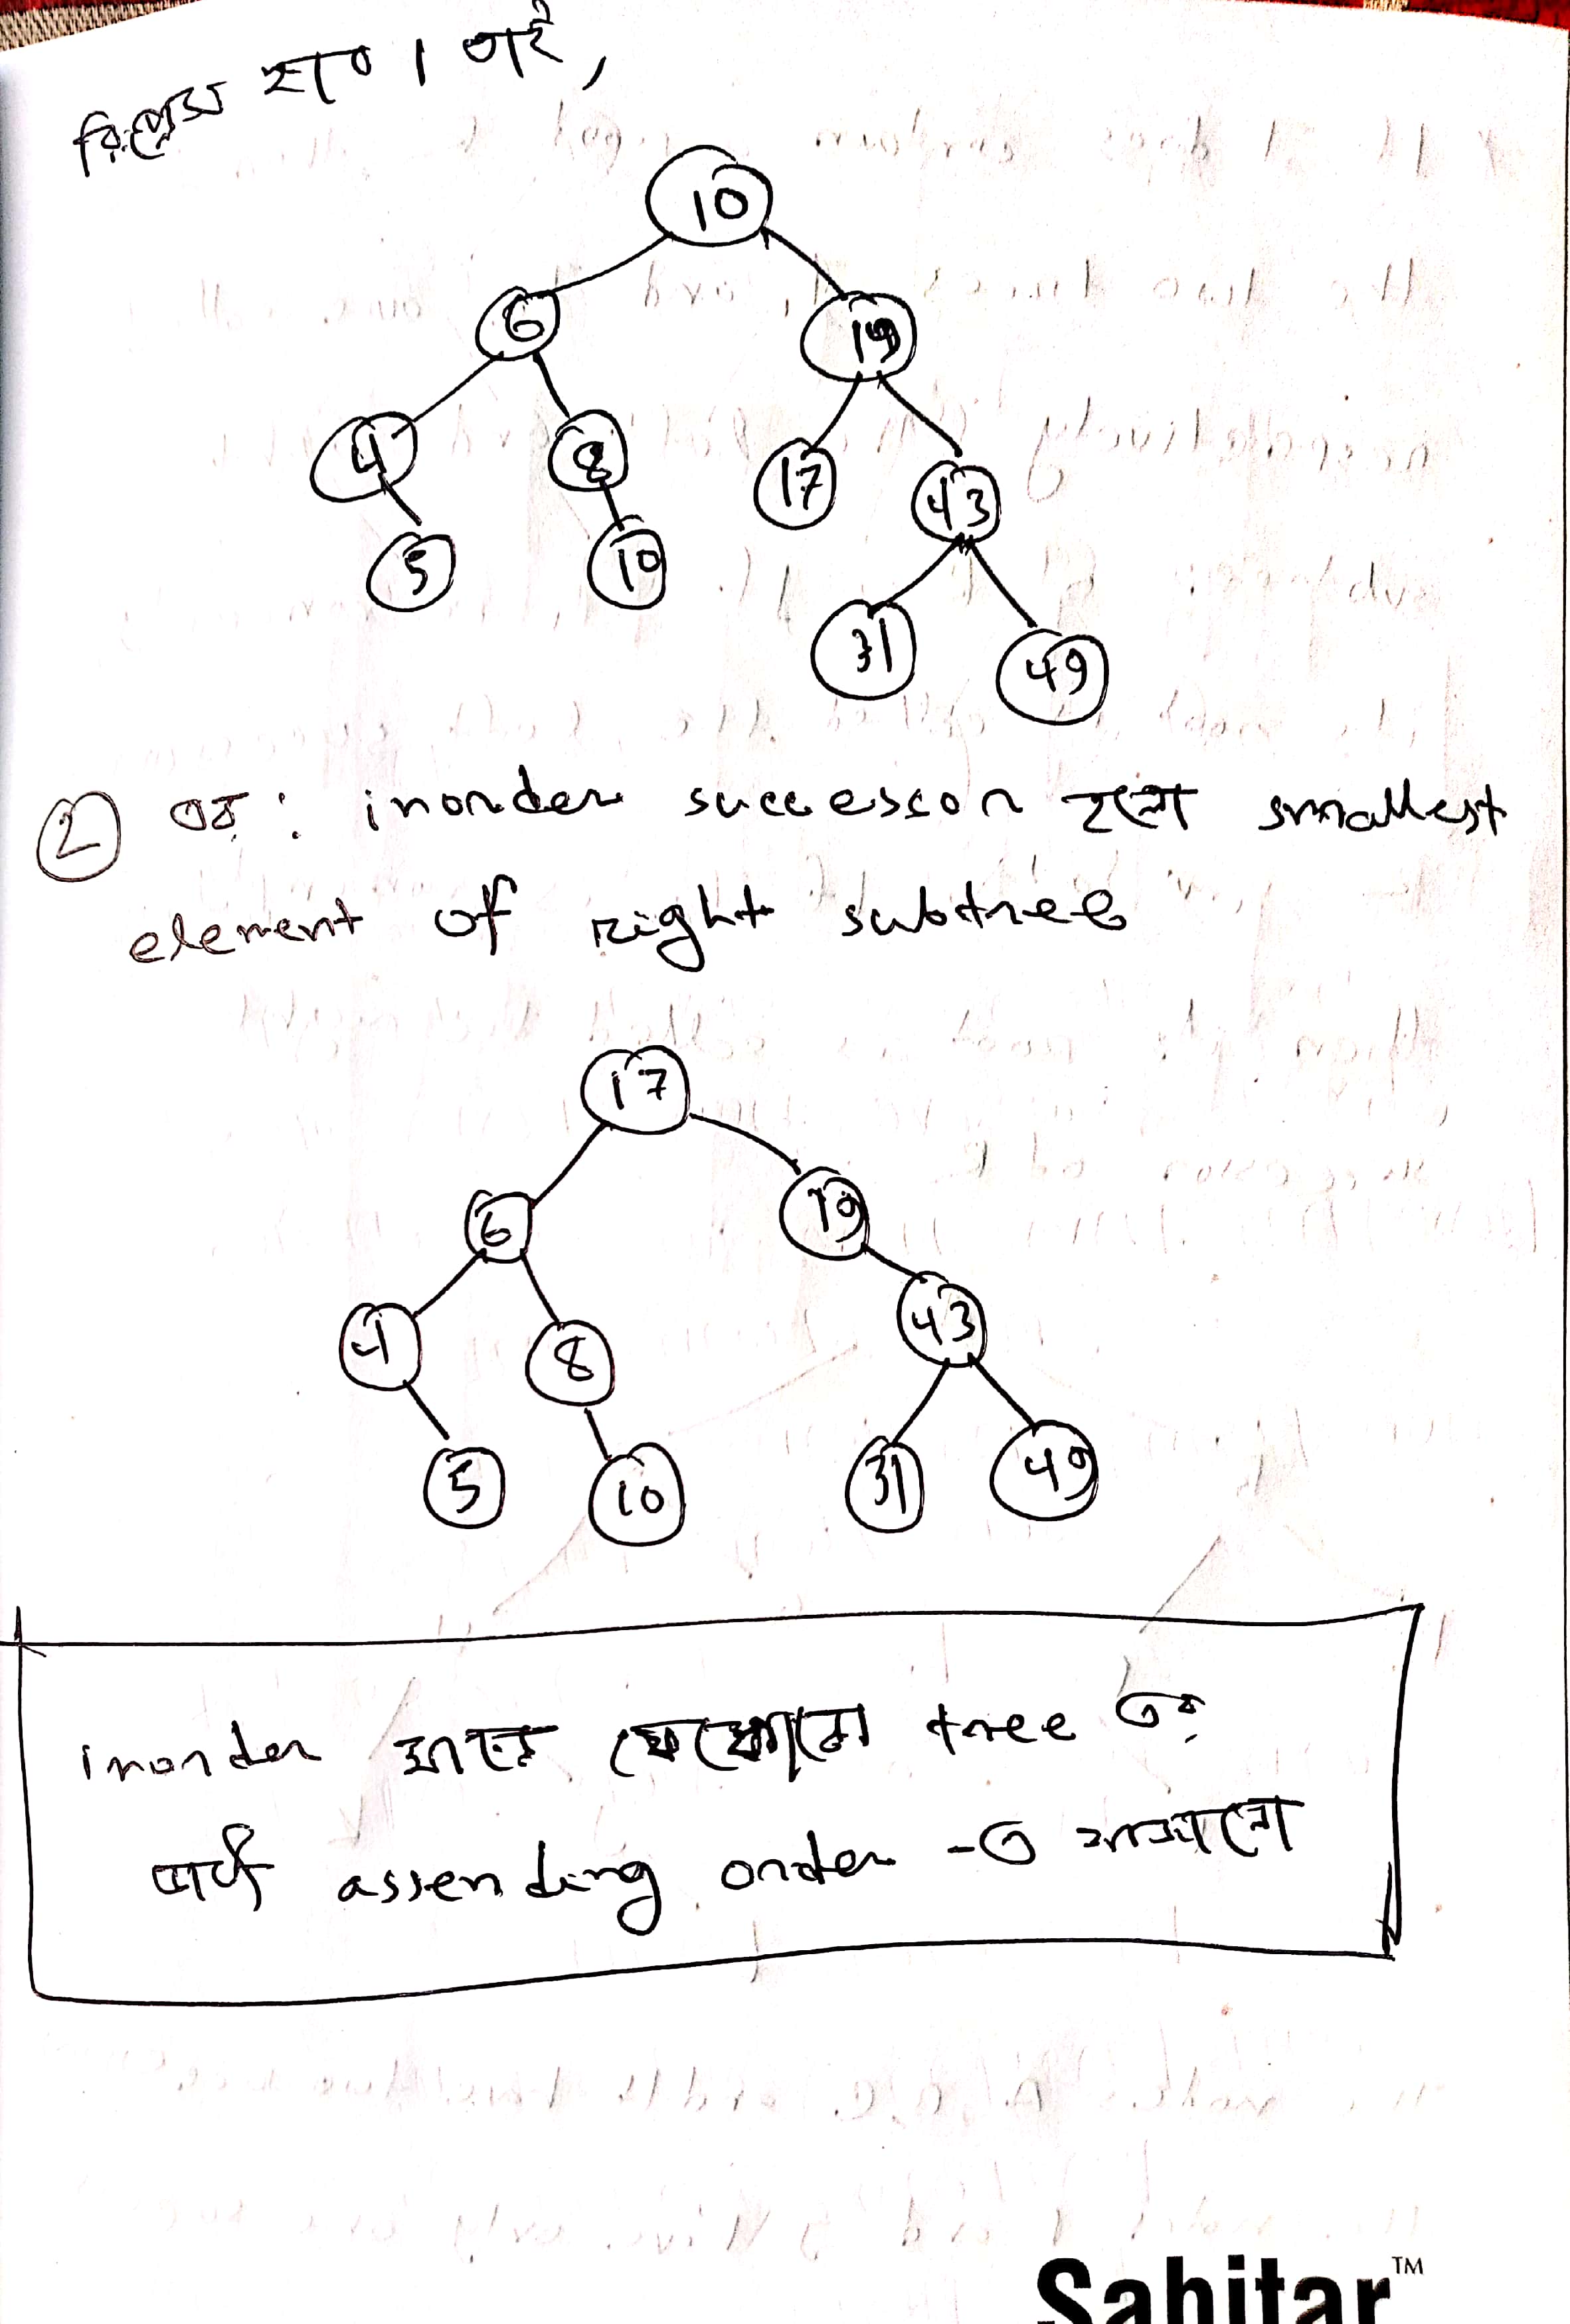 রিপ্লেস হবে। তাই,
10
6 19
4 8 17 43
5 10
31 49
② এর : inorder successor হলো smallest
element of right subtree
17
6 19
4 8 43
5 10 31 49
inorder মানে যেকোনো tree এর
assending order -এ সাজানো
Sahitar™